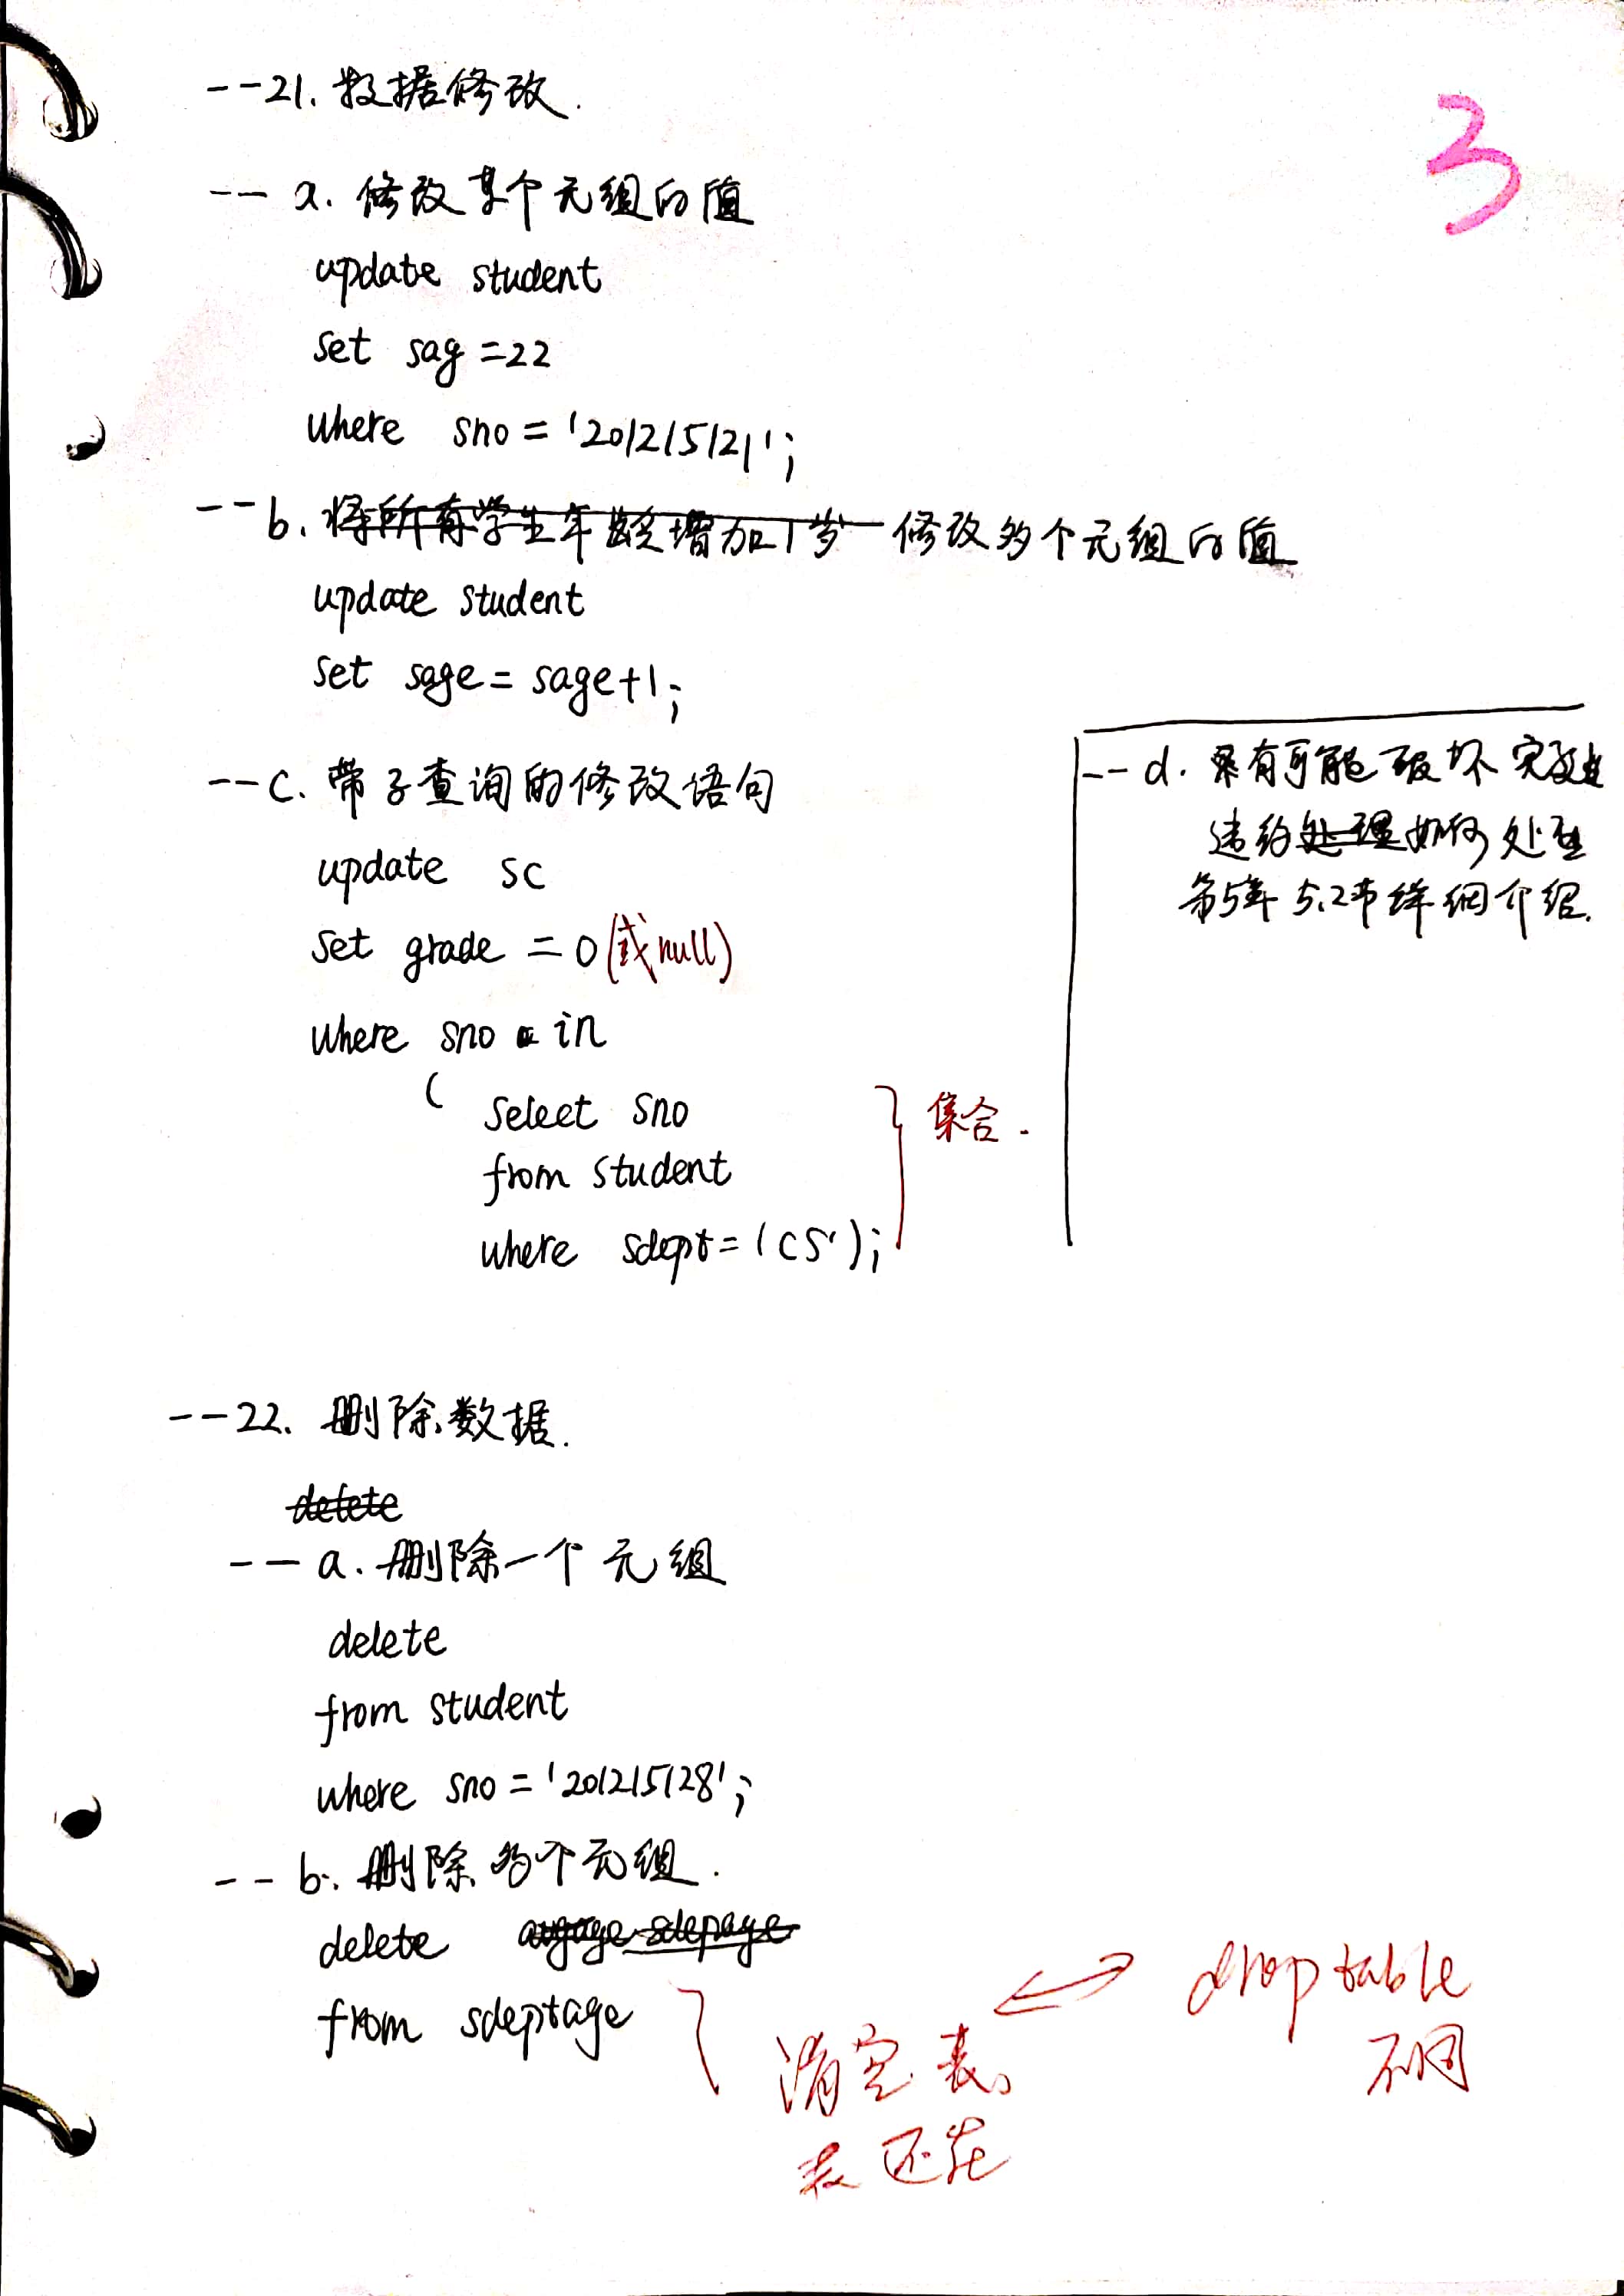 3
--21. 数据修改.
-- a. 修改某个元组的值
update student
set sag =22
where sno = '201215121';
--b. 将所有学生年龄增加1岁 修改多个元组的值
update student
set sage = sage+1;
--c. 带子查询的修改语句
update sc
set grade = 0 (或null)
where sno in
( select sno
from student
where sdept = 'CS');
集合.
--d. 有可能破坏完整性
违约处理如何处理
第5章 5.2节详细介绍.
--22. 删除数据.
delete
-- a. 删除一个元组
delete
from student
where sno = '201215128';
-- b. 删除多个元组.
delete
from sdeptage
清空表,
表还在
drop table
不同